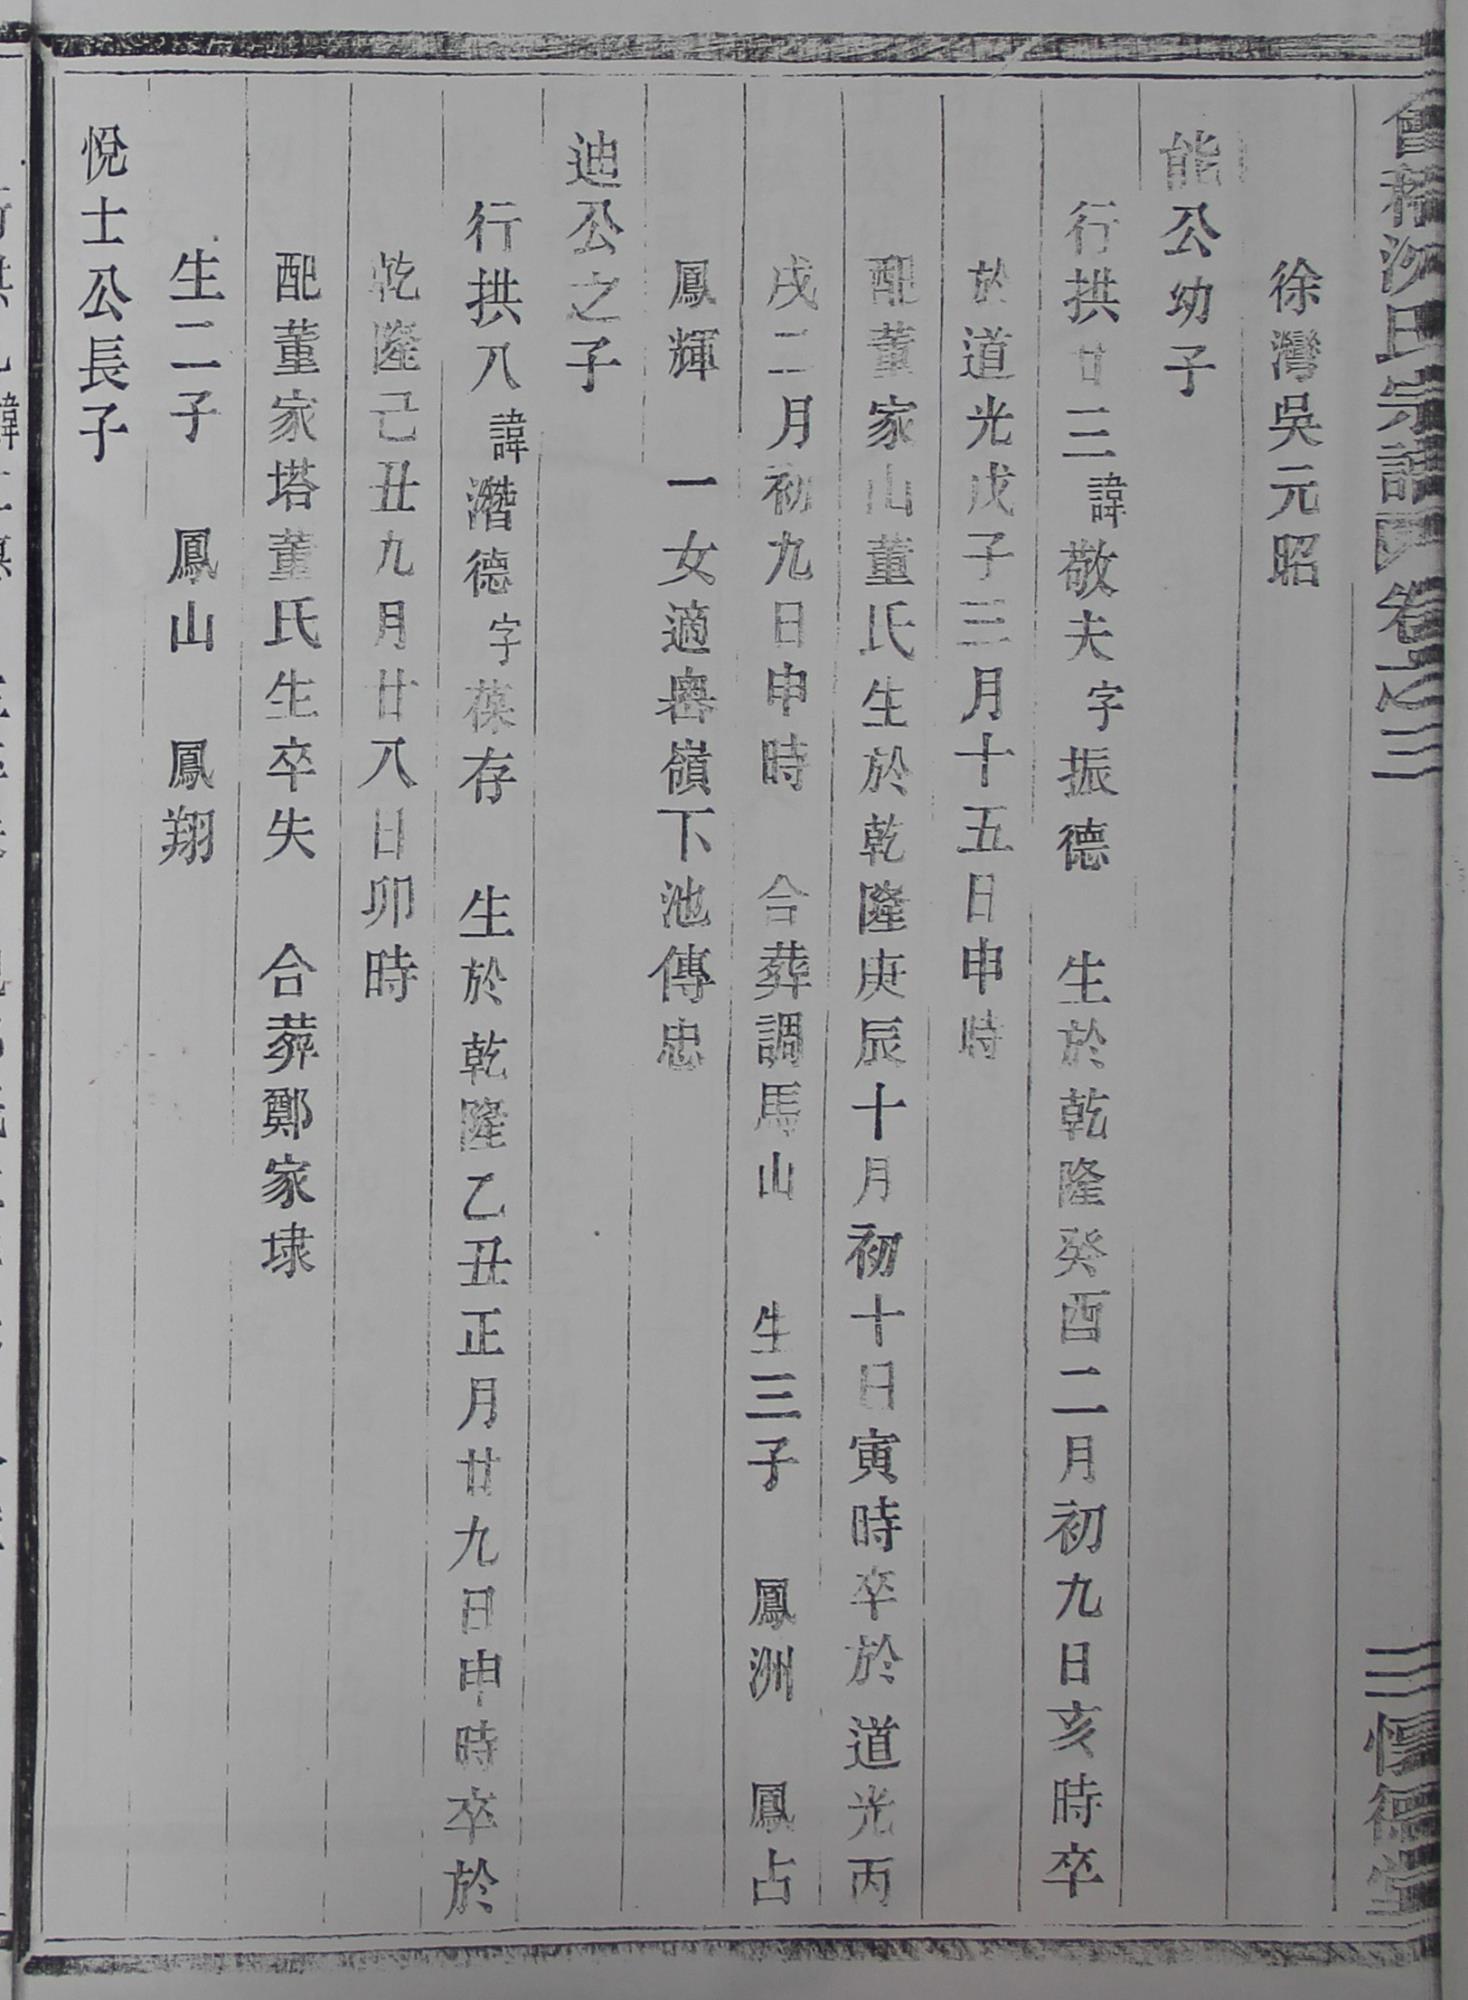 會稽沈氏宗譜 卷之三 三 德堂
徐灣吳元昭
能公幼子
行拱廿三諱敬夫字振德 生於乾隆癸酉二月初九日亥時卒
於道光戊子三月十五日申時
配董家山董氏生於乾隆庚辰十月初十日寅時卒於道光丙
戌二月初九日申時 合葬調馬山 生三子 鳳洲 鳳占
鳳輝 一女適粵嶺下池傳忠
迪公之子
行拱八諱潛德字葆存 生於乾隆乙丑正月廿九日申時卒於
乾隆己丑九月廿八日卯時
配董家塔董氏生卒失 合葬鄭家埭
生二子 鳳山 鳳翔
悅士公長子